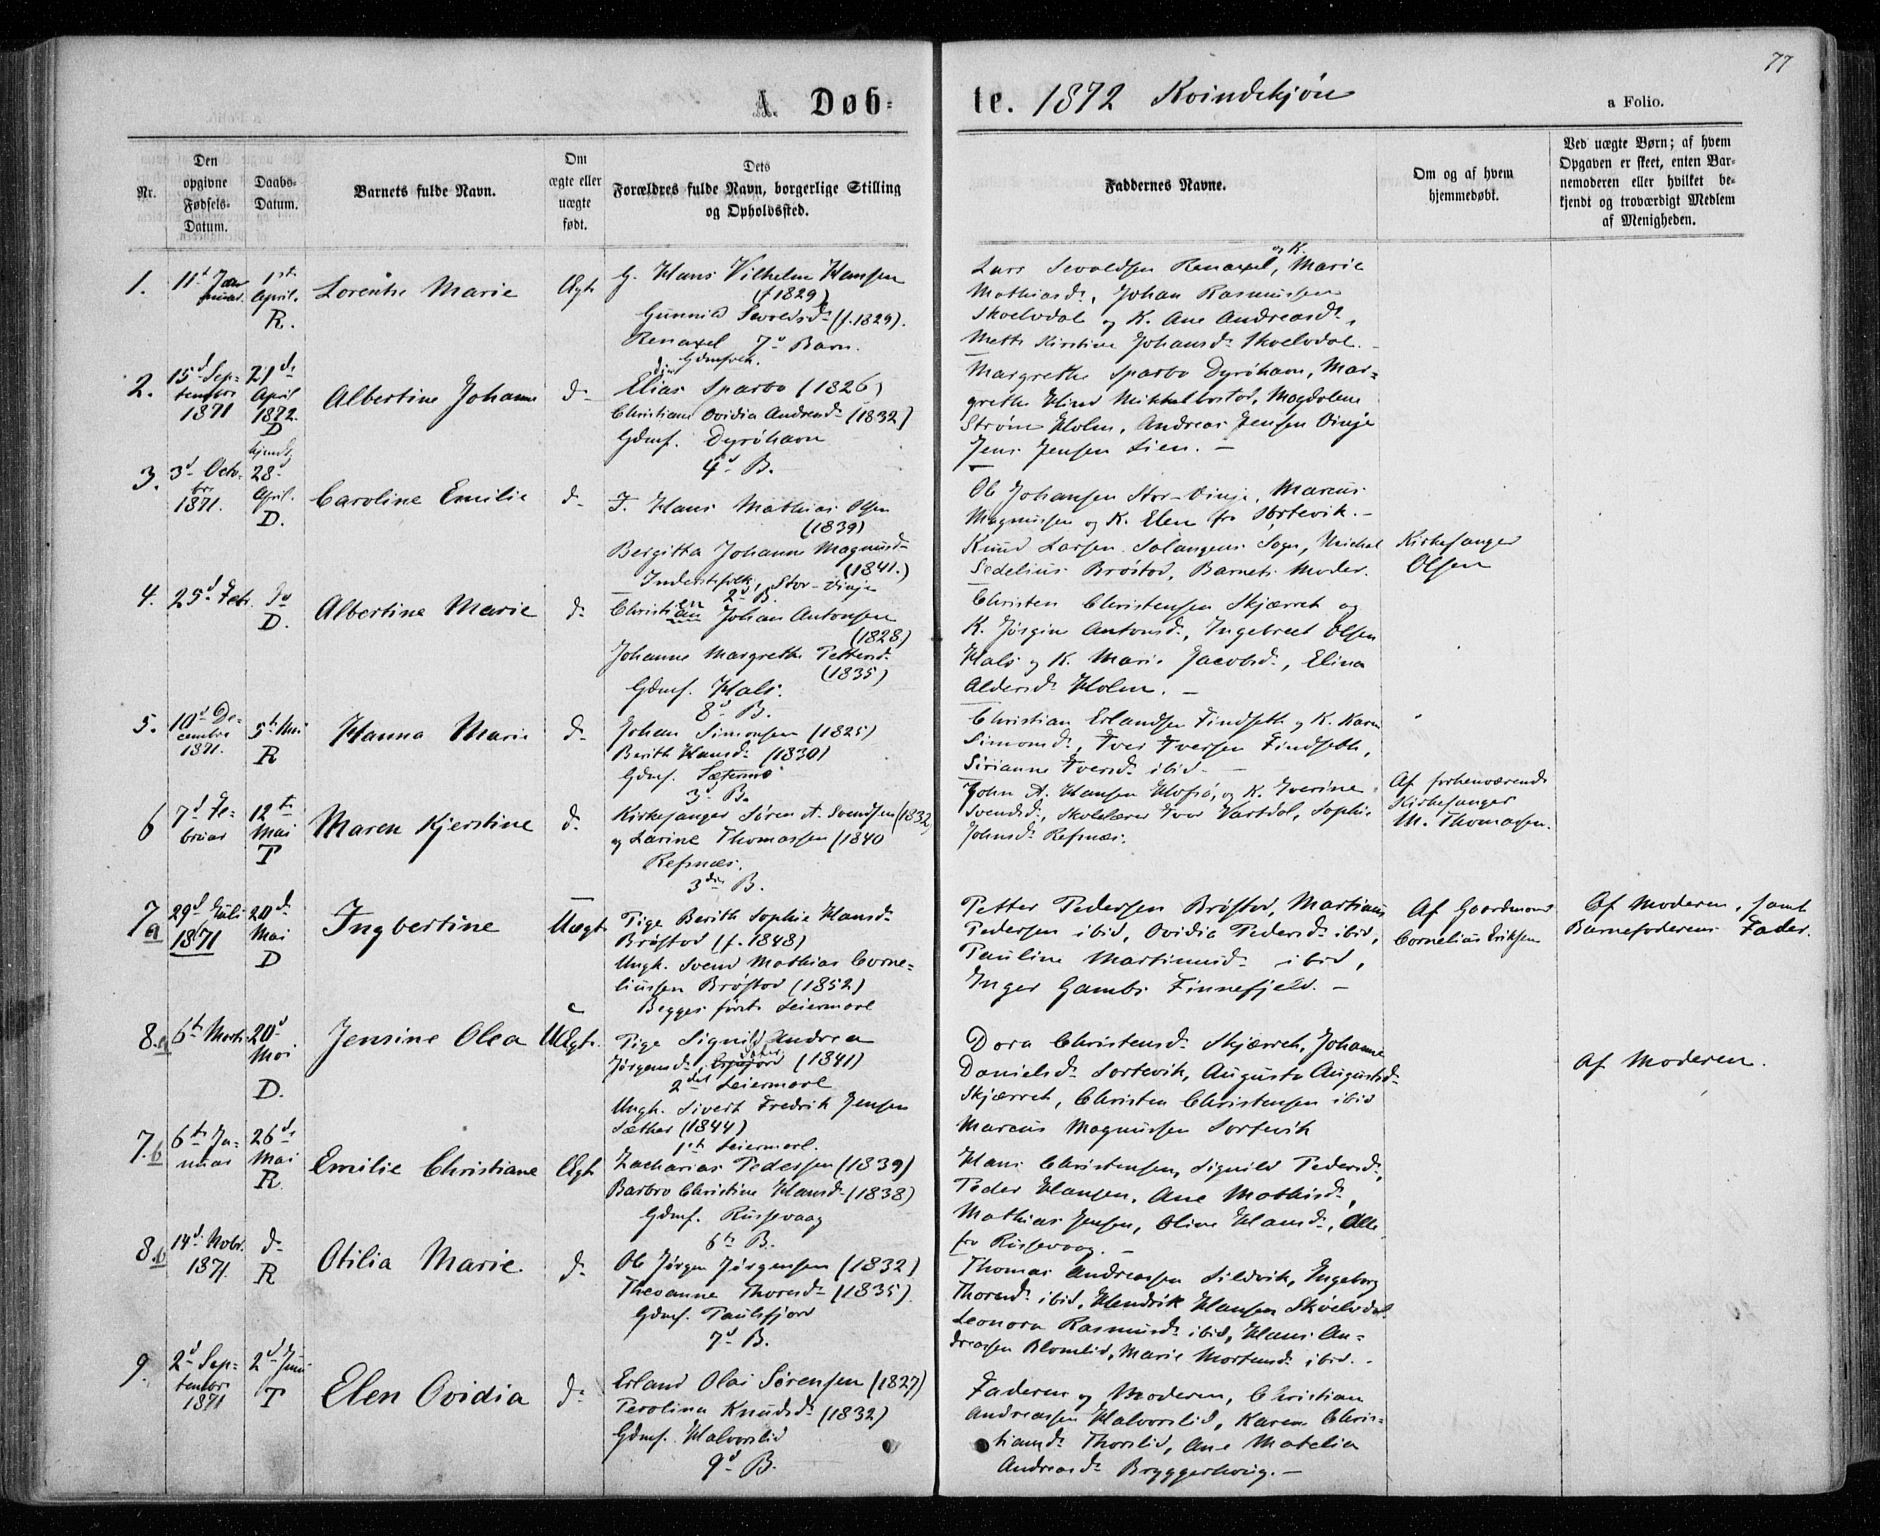 77
A. Døb-
te. 1872 Kvindekjøn
a Folio.
Nr.
Den opgivne Fødsels-Datum.
Daabs-Datum.
Barnets fulde Navn.
Om ægte eller uægte født.
Dets Forældres fulde Navn, borgerlige Stilling og Opholdssted.
Faddernes Navne.
Om og af hvem hjemmedøbt.
Ved uægte Børn; af hvem Opgaven er skeet, enten Barnemoderen eller hvilket bekjendt og troværdigt Medlem af Menigheden.
1.
11t Januar.
1st April. R.
Lorentse Marie
Ægt.
G. Hans Vilhelm Hansen
(f. 1829)
Gunnild Sevaldsd. (f. 1829).
Renaxel 7d Barn.
Lars Sevaldsen Renaxel, og K. Marie
Mathiasd., Johan Rasmussen
Skoelvdal og K. Ane Andreasd.,
Mette Kirstine Johansd. Skoelvdal.
2.
15d September 1871
21de April 1872. D
Albertine Johanne
d.
Gdmfolk.
Elias Sparbo (1826)
Christiane Ovidia Andreasd. (1832)
Gdmf. Dyrøhavn
4d B.
Margrethe Sparbo Dyrøhavn, Mar-
grethe Hind Mikkelbostad, Magdalene
Strøm Holm, Andreas Jensen Vinje
Jens Jensen Lien. —
3.
3d Octobr. 1871.
28d April. D.
Caroline Emilie
d.
I. Hans Mathias Olsen
(1839)
Bergitta Johanne Magnusd.
(1841.)
Inderstfolk, Stor-Vinje
2d B.
Ole Johansen Stor-Vinje, Marcus
Magnussen og K. Elen fra Sortevik. —
Knud Larsen Salangens Sogn, Michal
Sedelius Brøstad, Barnets Moder.
Kirkesanger
Olsen
4.
25d Febr.
do D.
Albertine Marie
d.
Christian Johan Antonsen
(1828)
Johanne Margrethe Pettersd.
(1835)
Gdmf. Hals.
8d B.
Christen Christensen Skjærret og
K. Jørgine Antonsd., Ingebrect Olsen
Hals og K. Marie Jacobsd., Elina
Aldersd. Holm. —
5.
10d December 1871.
5t Mai R
Hanna Marie
d.
Johan Simonsen (1825)
Berith Hansd. (1830)
Gdmf. Sætermo
3d B.
Christian Erlandsen Findseth og K. Karen
Simonsd., Iver Iversen Findseth,
Sirianne Iversd. ibid.
6
7d Februar
12te Mai T
Maren Kjerstine
d.
Kirkesanger Søren A. Svendsen (1832)
og Larine Thomassen (1840
Refsnæs.
3die B.
John A. Hansen Hofsø, og K. Iverine
Svendsd., Skolelærer Iver Vartdal, Sophie
Johnsd. Refsnæs.
Af forhenværende
Kirkesanger
M. Thomasen.
7 a
29d Juli 1871
20de Mai D
Ingbertine
Uægt.
Pige Berith Sophie Hansd.
Brøstad (f. 1848)
Ungk. Svend Mathias Corne-
liussen Brøstad (1852)
Begges første Leiermaal
Petter Pedersen Brøstad, Martinus
Pedersen ibid, Ovidia Pedersd. ibid,
Pauline Martinusd. ibid,
Inger Gambs Finnefjeld. —
Af Gaardmand
Cornelius Eriksen
Af Moderen, samt
Barnefaderens Fader.
8. a
6te Marts
20d Mai D.
Jensine Olea
Uægt.
Pige Signild Andrea
Jørgensd., (1841)
2det Leiermaal
Ungk. Sivert Fredrik Jensen
Sæther (1844)
1ste Leiermaal.
Dora Christensd. Skjærret, Johanne
Danielsd. Sortevik, Augusta Augustsd.
Skjærret, Christen Christensen ibid
Marcus Magnussen Sortevik
Af Moderen.
7. b
6te Januar
26de Mai R
Emilie Christiane
Ægt.
Zacharias Pedersen (1839)
Barbro Christine Hansd. (1838)
Gdmf. Russevaag
6te B.
Hans Christensen, Signild Pedersd.,
Peder Hansen, Ane Mathisd.,
Mathias Jensen, Oline Hansd., Alle
fra Russevaag. —
8. b
14d Nobr. 1871.
d. R
Otilia Marie.
d.
Ole Jørgen Jørgensen (1832)
Theoanne Thomasd. (1835)
Gdmf. Paulsfjord
7d B.
Thomas Andreassen Sildvik, Ingeborg
Thomasd. ibid, Hendrik Hansen Skoelvdal
Leonora Rasmusd. ibid, Hans An-
dreassen Blomlid, Marie Mortensd. ibid.
9.
2d September 1871
2d Juni T
Elen Ovidia
d.
Erland Olai Sørensen (1827)
Perolina Knudsd. (1832)
Gdmf. Halvorslid
9d B.
Faderen og Moderen, Christian
Andreassen Halvorslid, Karen Chris-
tiansd. Thorslid, Ane Matelia
Andreasd. Bryggerhaug. —